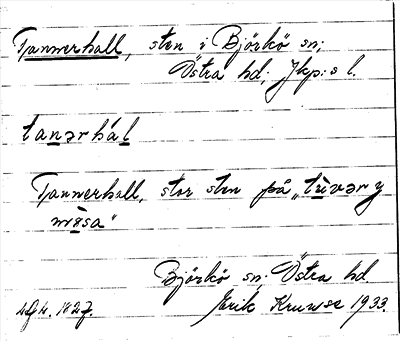 Tannerhall, sten i Björkö sn;
Östra hd; Jkp:s l.
tanərhál
Tannerhall, stor sten på „tùvəry
mòsa"
Björkö sn; Östra hd.
Erik Kruuse 1933.